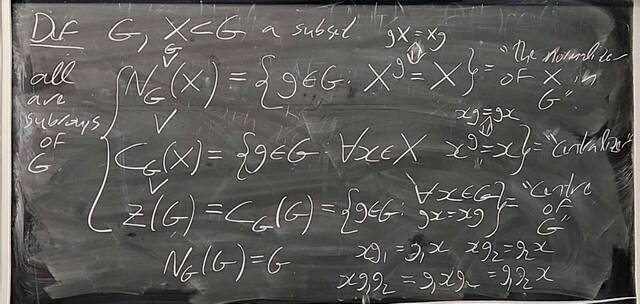 Def G, X ⊂ G a subset gX = Xg
G
all are subgroups of G
N_G(X) = {g ∈ G : X^g = X} = "The normalizer of X in G"
xg = gx
C_G(X) = {g ∈ G : ∀x ∈ X x^g = x} = "Centralizer"
Z(G) = C_G(G) = {g ∈ G : ∀x ∈ G gx = xg} = "Centre of G"
N_G(G) = G xg₁ = g₁x xg₂ = g₂x
xg₁g₂ = g₁xg₂ = g₁g₂x